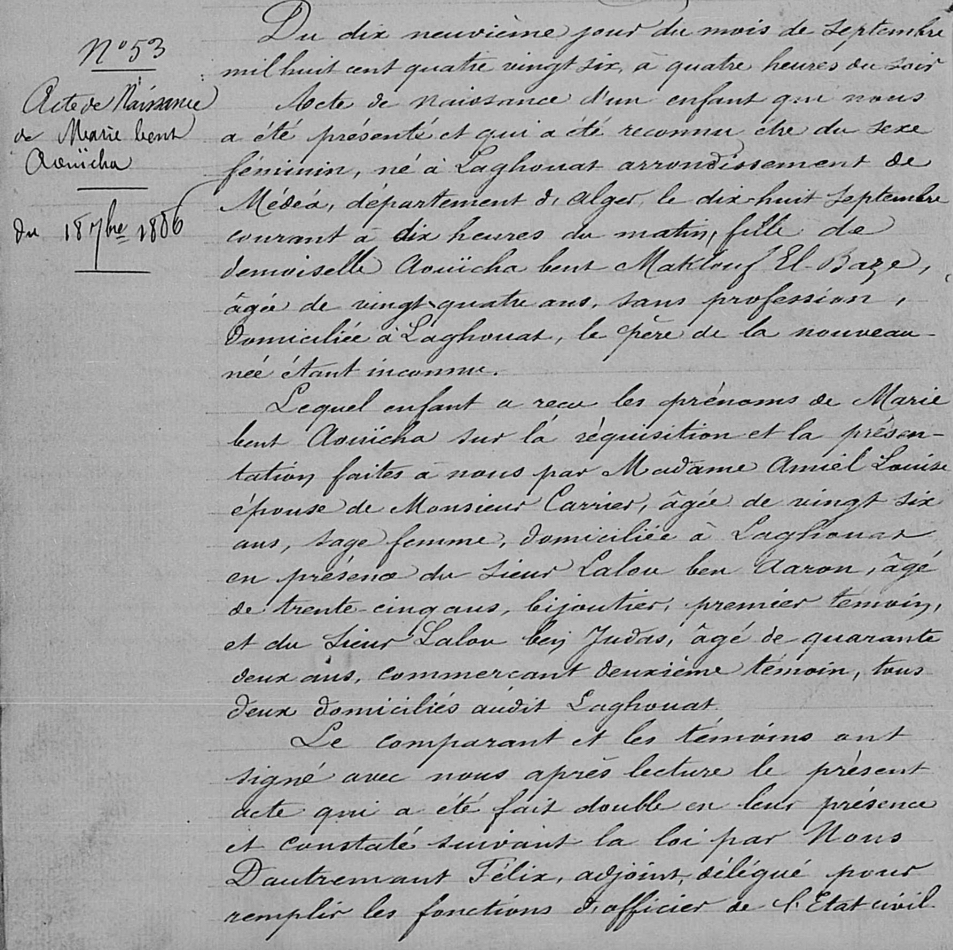 N° 53
Acte de Naissance
de Marie bent
Aouïcha
du 18 7bre 1886
Du dix neuvième jour du mois de septembre
mil huit cent quatre vingt six, à quatre heures du soir
Acte de naissance d'un enfant qui nous
a été présenté et qui a été reconnu être du sexe
féminin, né à Laghouat arrondissement de
Médéa, département d'Alger, le dix-huit septembre
courant à dix heures du matin, fille de
demoiselle Aouïcha bent Maklouf El-Baze,
âgée de vingt-quatre ans, sans profession,
domiciliée à Laghouat, le père de la nouveau-
née étant inconnu.
Lequel enfant a reçu les prénoms de Marie
bent Aouïcha sur la réquisition et la présen-
tation faites à nous par Madame Amiel Louise
épouse de Monsieur Carrier, âgée de vingt six
ans, sage femme, domiciliée à Laghouat
en présence du sieur Lalou ben Aaron, âgé
de trente-cinq ans, bijoutier, premier témoin,
et du sieur Lalou ben Judas, âgé de quarante
deux ans, commerçant deuxième témoin, tous
deux domiciliés audit Laghouat.
Le comparant et les témoins ont
signé avec nous après lecture le présent
acte qui a été fait double en leur présence
et constaté suivant la loi par Nous
Dautremant Félix, adjoint, délégué pour
remplir les fonctions d'officier de l'Etat civil.